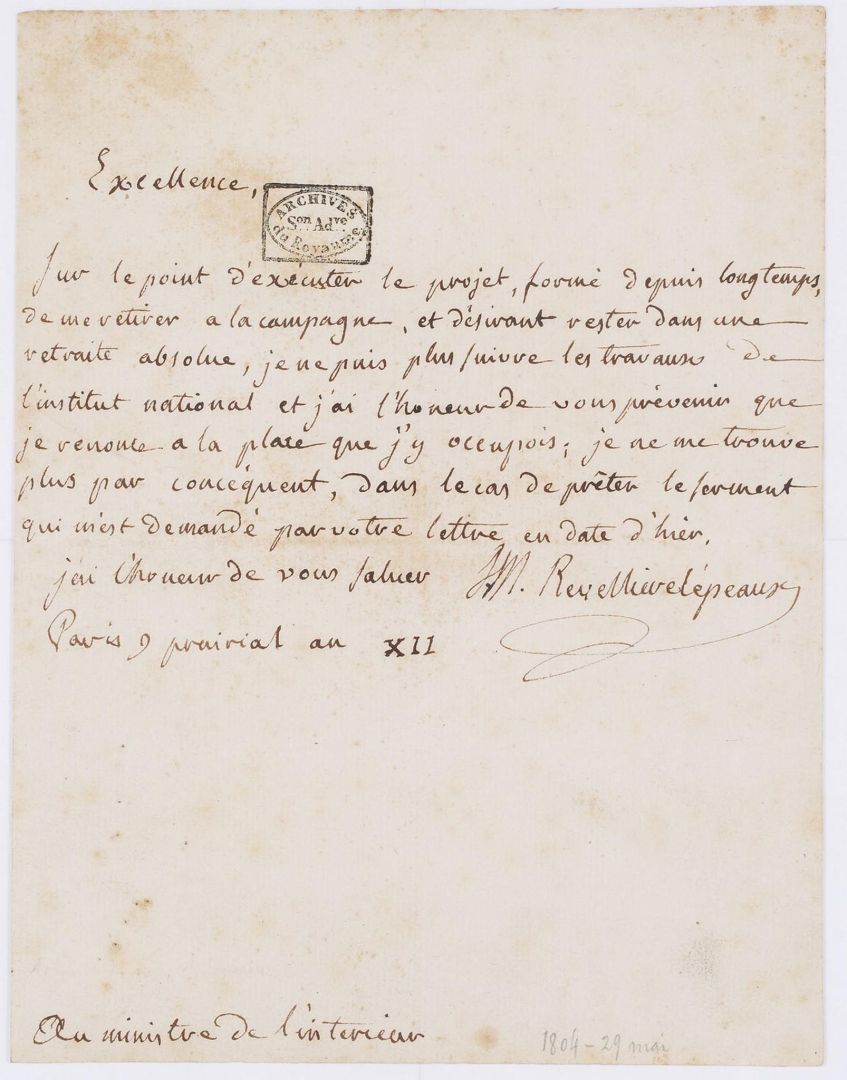 Excellence,
ARCHIVES
Son Adve
du Royaume
Sur le point d'exécuter le projet, formé depuis longtemps,
de me retirer a la campagne, et désirant rester dans une
retraite absolue, je ne puis plus suivre les travaux de
l'institut national et j'ai l'honeur de vous prévenir que
je renonce a la place que j'y occupois; je ne me trouve
plus par concéquent, dans le cas de prêter le serment
qui m'est demandé par votre lettre en date d'hièr.
j'ai l'honeur de vous saluer
LM. Revelliere Lépeaux
Paris 9 prairial an XII
Au ministre de l'interieur
1804 - 29 mai